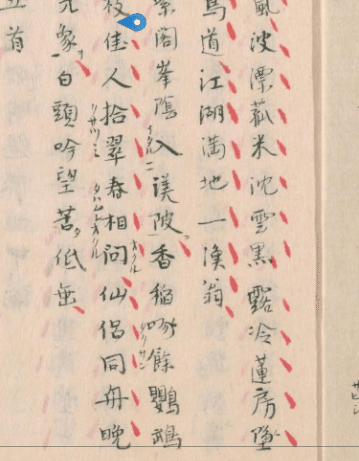 風波漂菰米沈雲黒露冷蓮房墜
鳥道江湖満地一漁翁
閣峯陰入渼陂香稲啄餘鸚鵡
枝佳人拾翠春相問仙侶同舟晩
象白頭吟望苦低垂
首